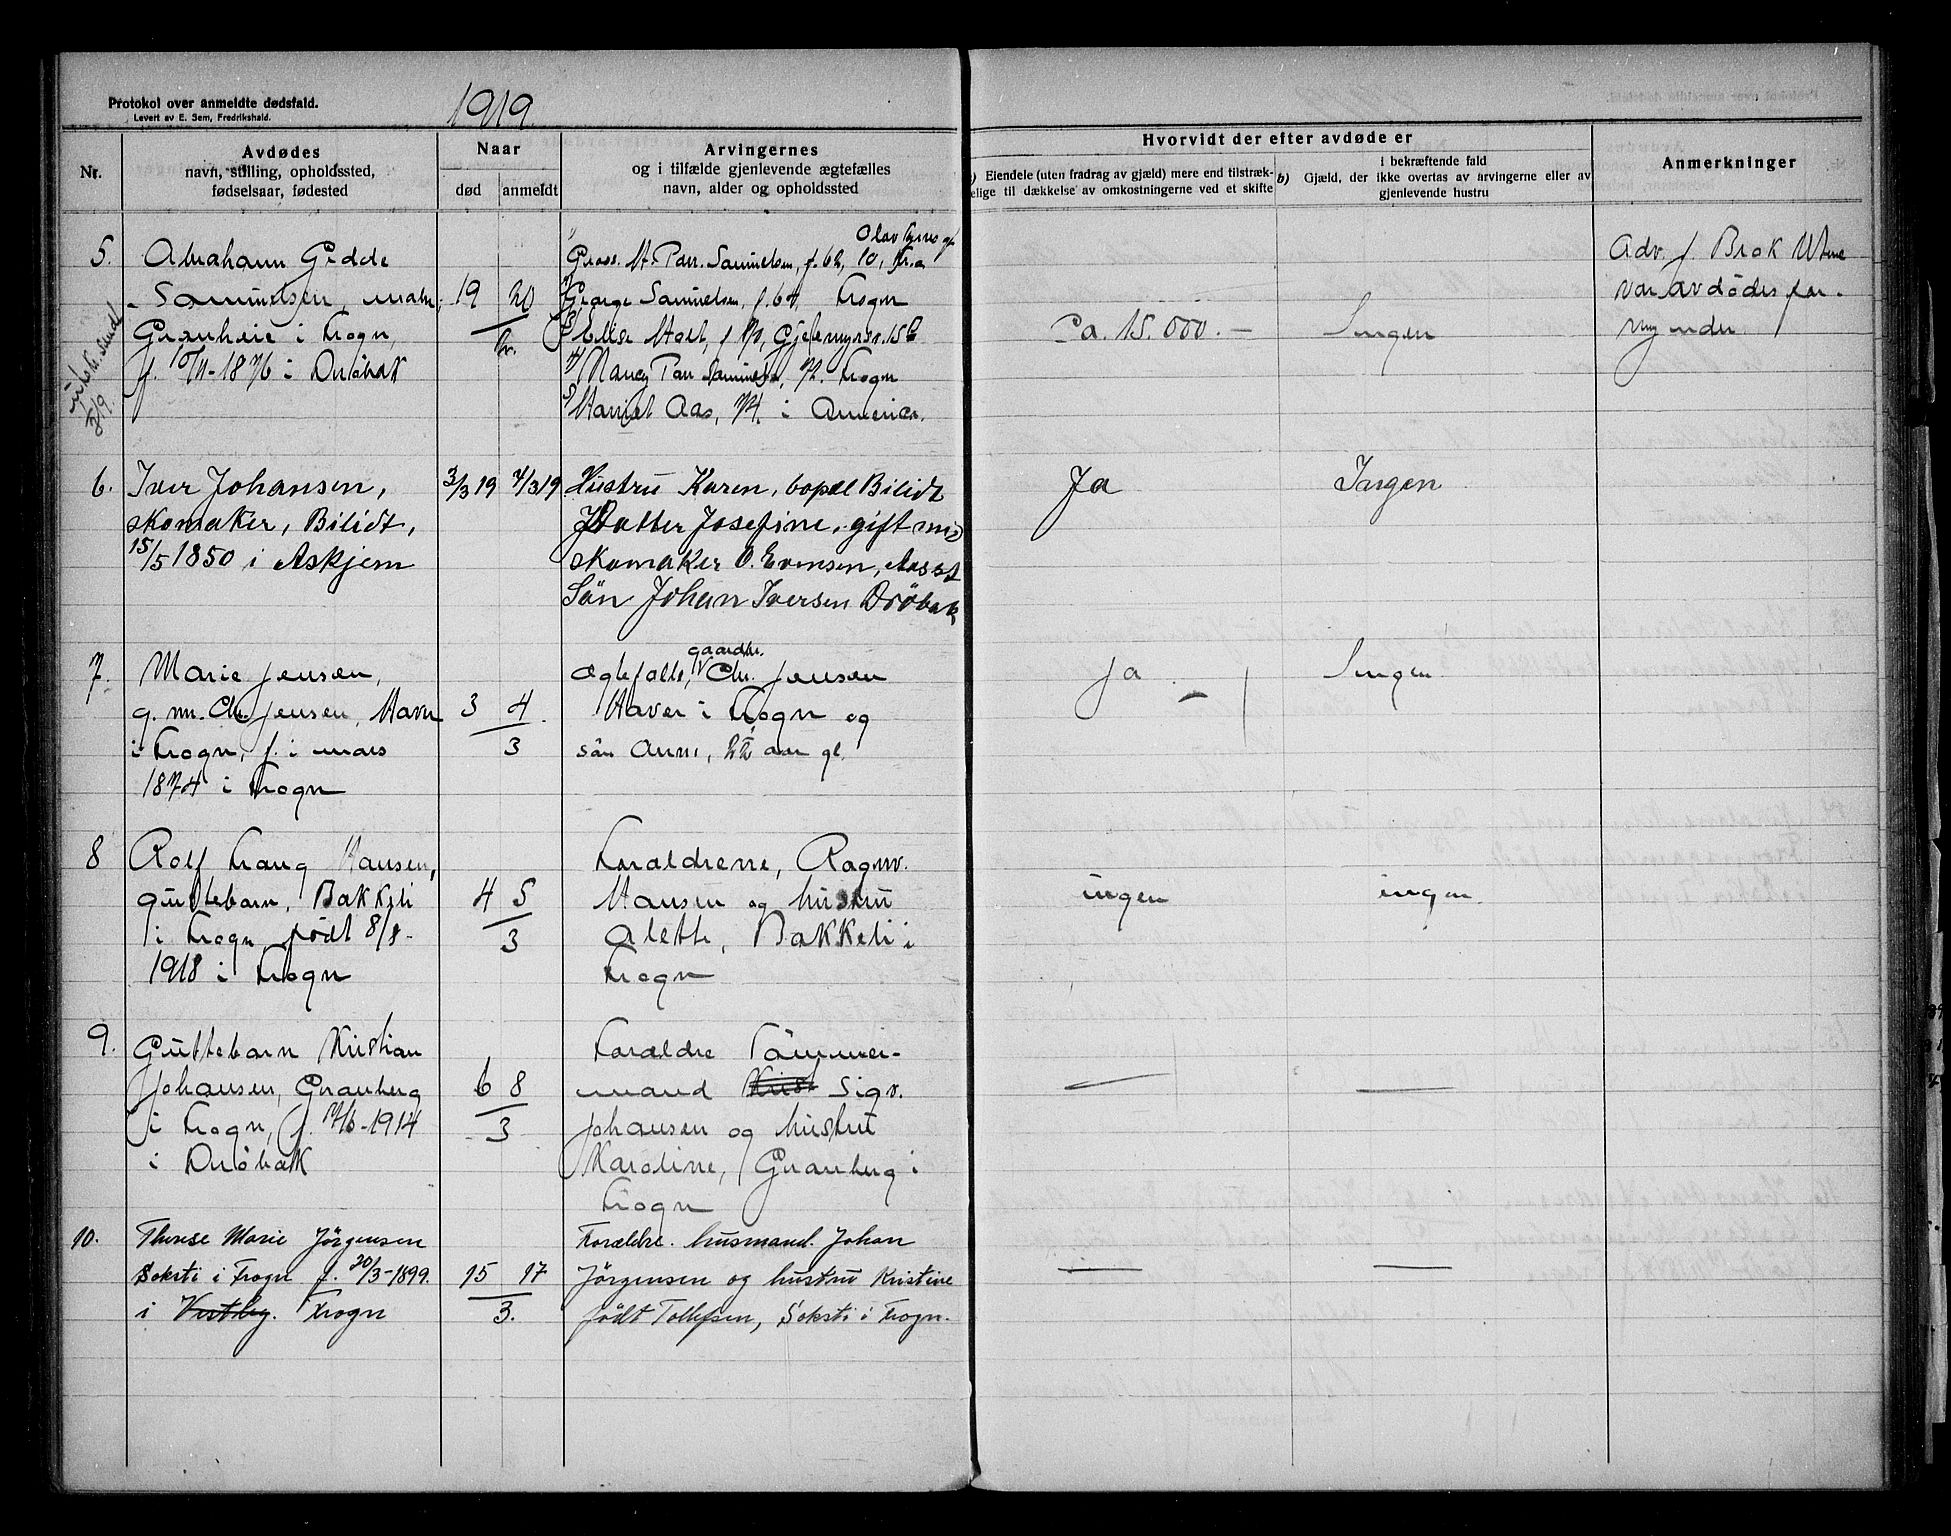 Protokol over anmeldte dødsfald.
Levert av E. Sem, Fredrikshald.
1919.
Nr.
Avdødes
navn, stilling, opholdssted,
fødselsaar, fødested
Naar
død anmeldt
Arvingernes
og i tilfælde gjenlevende ægtefælles
navn, alder og opholdssted
Hvorvidt der efter avdøde er
a) Eiendele (uten fradrag av gjæld) mere end tilstræk-
kelige til dækkelse av omkostningerne ved et skifte
i bekræftende fald
b) Gjæld, der ikke overtas av arvingerne eller av
gjenlevende hustru
Anmerkninger
5.
Abraham Gidde
Samuelsen, maler,
Granheie i Frogn,
f. 10/11-1876 i Drøbak
19 20
Samuelsen, f. 62, 10, Kr.a
George Samuelsen, f. 64, Frogn
Elise Holt,
Nancy Parr Samuelsen, Frogn
Harriet Aas, 74. i Amerika.
Ca. 15.000.-
Ingen
Adv. f. Brok Utne
var avdødes for-
mynder
6.
Iver Johansen,
skomaker, Bilidt,
15/5 1850 i Askjem
3/3 19 4/3 19
Hustru Karen, bopæl Bilidt
Datter Josefine, gift med
skomaker O. Evensen,
Sön Johan Iversen Dröbak
Ja
Ingen
7.
Marie Jensen,
g. m. Chr. Jensen, Haver
i Frogn, f. i mars
1874 i Frogn
3 4
3
gaardbr.
Ægtefælle, Chr. Jensen
Haver i Frogn og
sön Arne, 22 aar gl.
Ja
Ingen
8
Rolf Traug Hansen,
guttebarn, Bakkeli
i Frogn, født 8/8-
1918 i Frogn
4 5
3
Forældrene, Ragnv.
Hansen og hustru
Alette, Bakkeli i
Frogn
ingen
ingen
9.
Guttebarn Kristian
Johansen, Granberg
i Frogn, f. 17/6-1914
i Drøbak
6 8
3
Forældre Tömmer-
mand Krist Sigv.
Johansen og hustru
Karoline, Granberg i
Frogn
10.
Therese Marie Jörgensen
Soksti i Frogn f. 20/3-1899.
i Vestby. Frogn
15 17
3.
Forældre. husmand. Johan
Jörgensen og hustru Kristine
født Tollefsen, Soksti i Frogn.